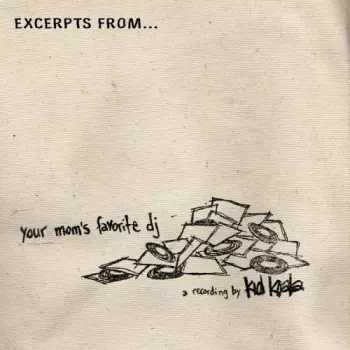 EXCERPTS FROM...
your mom's favorite dj
a recording by kid koala